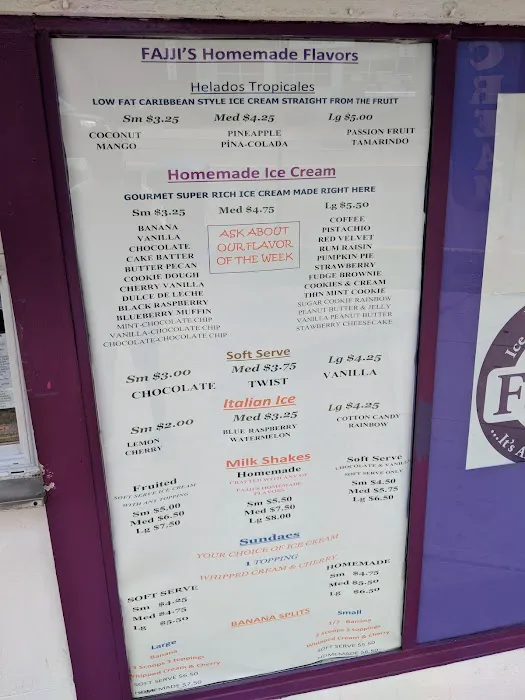 FAJJI'S Homemade Flavors
Helados Tropicales
LOW FAT CARIBBEAN STYLE ICE CREAM STRAIGHT FROM THE FRUIT
Sm $3.25 Med $4.25 Lg $5.00
COCONUT PINEAPPLE PASSION FRUIT
MANGO PĪNA-COLADA TAMARINDO
Homemade Ice Cream
GOURMET SUPER RICH ICE CREAM MADE RIGHT HERE
Sm $3.25 Med $4.75 Lg $5.50
BANANA
VANILLA
CHOCOLATE
CAKE BATTER
BUTTER PECAN
COOKIE DOUGH
CHERRY VANILLA
DULCE DE LECHE
BLACK RASPBERRY
BLUEBERRY MUFFIN
MINT-CHOCOLATE CHIP
VANILLA-CHOCOLATE CHIP
CHOCOLATE-CHOCOLATE CHIP
ASK ABOUT
OUR FLAVOR
OF THE WEEK
COFFEE
PISTACHIO
RED VELVET
RUM RAISIN
PUMPKIN PIE
STRAWBERRY
FUDGE BROWNIE
COOKIES & CREAM
THIN MINT COOKIE
SUGAR COOKIE RAINBOW
PEANUT BUTTER & JELLY
VANILLA PEANUT BUTTER
STAWBERRY CHEESECAKE
Soft Serve
Sm $3.00 Med $3.75 Lg $4.25
CHOCOLATE TWIST VANILLA
Italian Ice
Sm $2.00 Med $3.25 Lg $4.25
LEMON BLUE RASPBERRY COTTON CANDY
CHERRY WATERMELON RAINBOW
Milk Shakes
Fruited
SOFT SERVE ICE CREAM
WITH ANY TOPPING
Sm $5.00
Med $6.50
Lg $7.50
Homemade
CRAFTED WITH ANY OF
FAJJI'S HOMEMADE
FLAVORS
Sm $5.50
Med $7.50
Lg $8.00
Soft Serve
CHOCOLATE & VANILLA
SOFT SERVE ONLY
Sm $4.50
Med $5.75
Lg $6.50
Sundaes
YOUR CHOICE OF ICE CREAM
1 TOPPING
WHIPPED CREAM & CHERRY
SOFT SERVE
Sm $4.25
Med $4.75
Lg $5.50
HOMEMADE
Sm $4.75
Med $5.50
Lg $6.50
BANANA SPLITS
Large
Banana
3 Scoops 3 Toppings
Whipped Cream & Cherry
SOFT SERVE $6.50
HOMEMADE $7.50
Small
1/2 Banana
Whipped Cream & Cherry
SOFT SERVE $5.50
HOMEMADE
Ice
F
...It's A